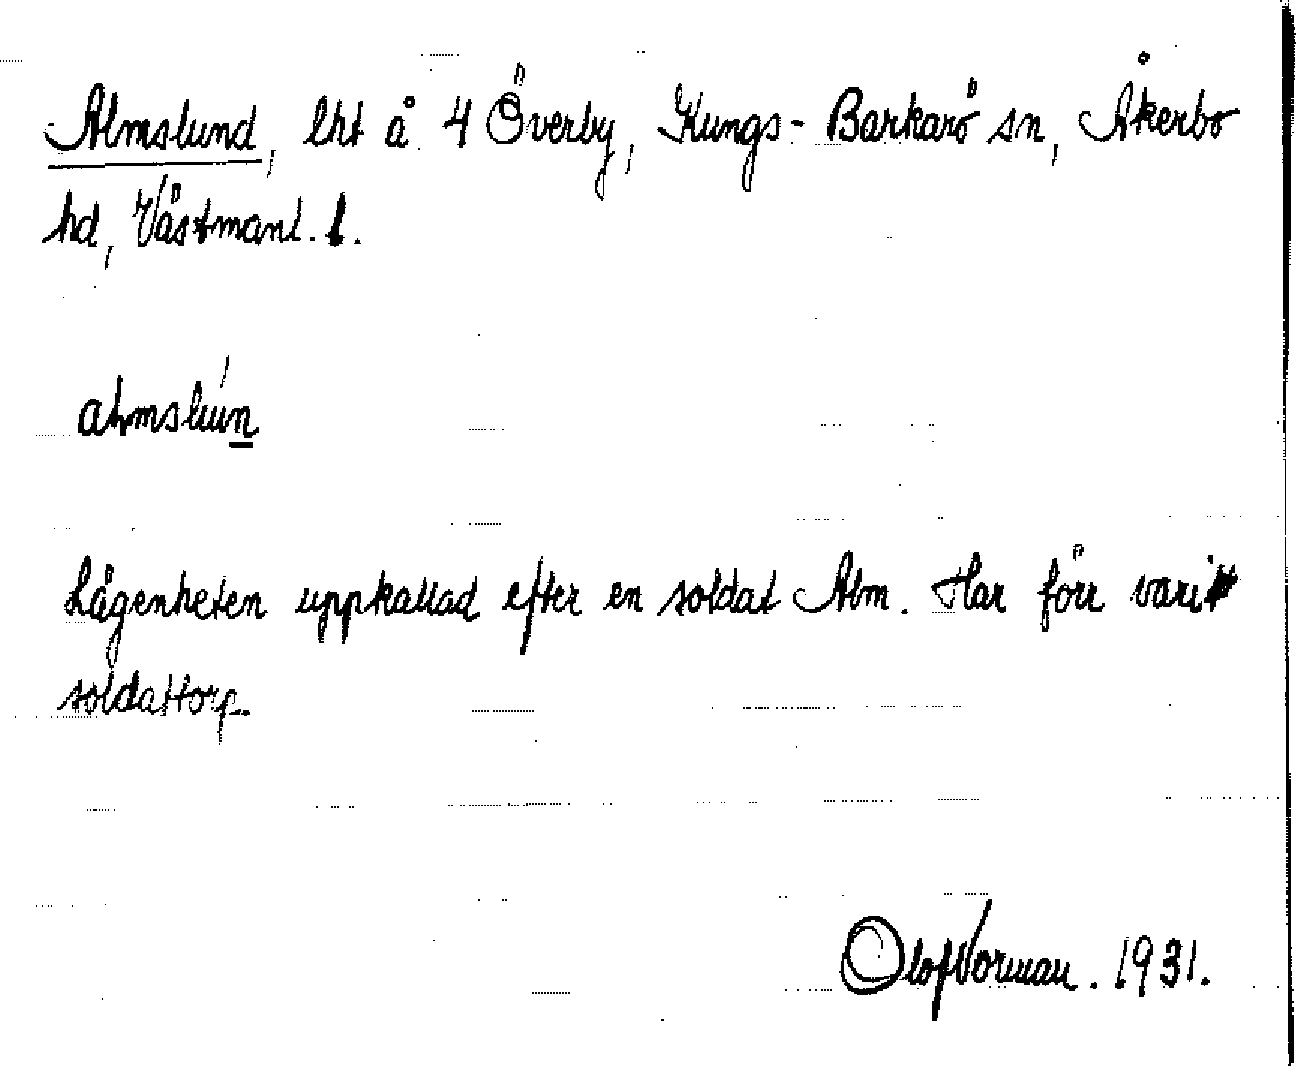 Almslund, lht å 4 Överby, Kungs-Barkarö sn, Åkerbo
hd, Västmanl. l.
Lägenheten uppkallad efter en soldat Alm. Har förr varit
soldattorp.
Olof Vorman. 1931.